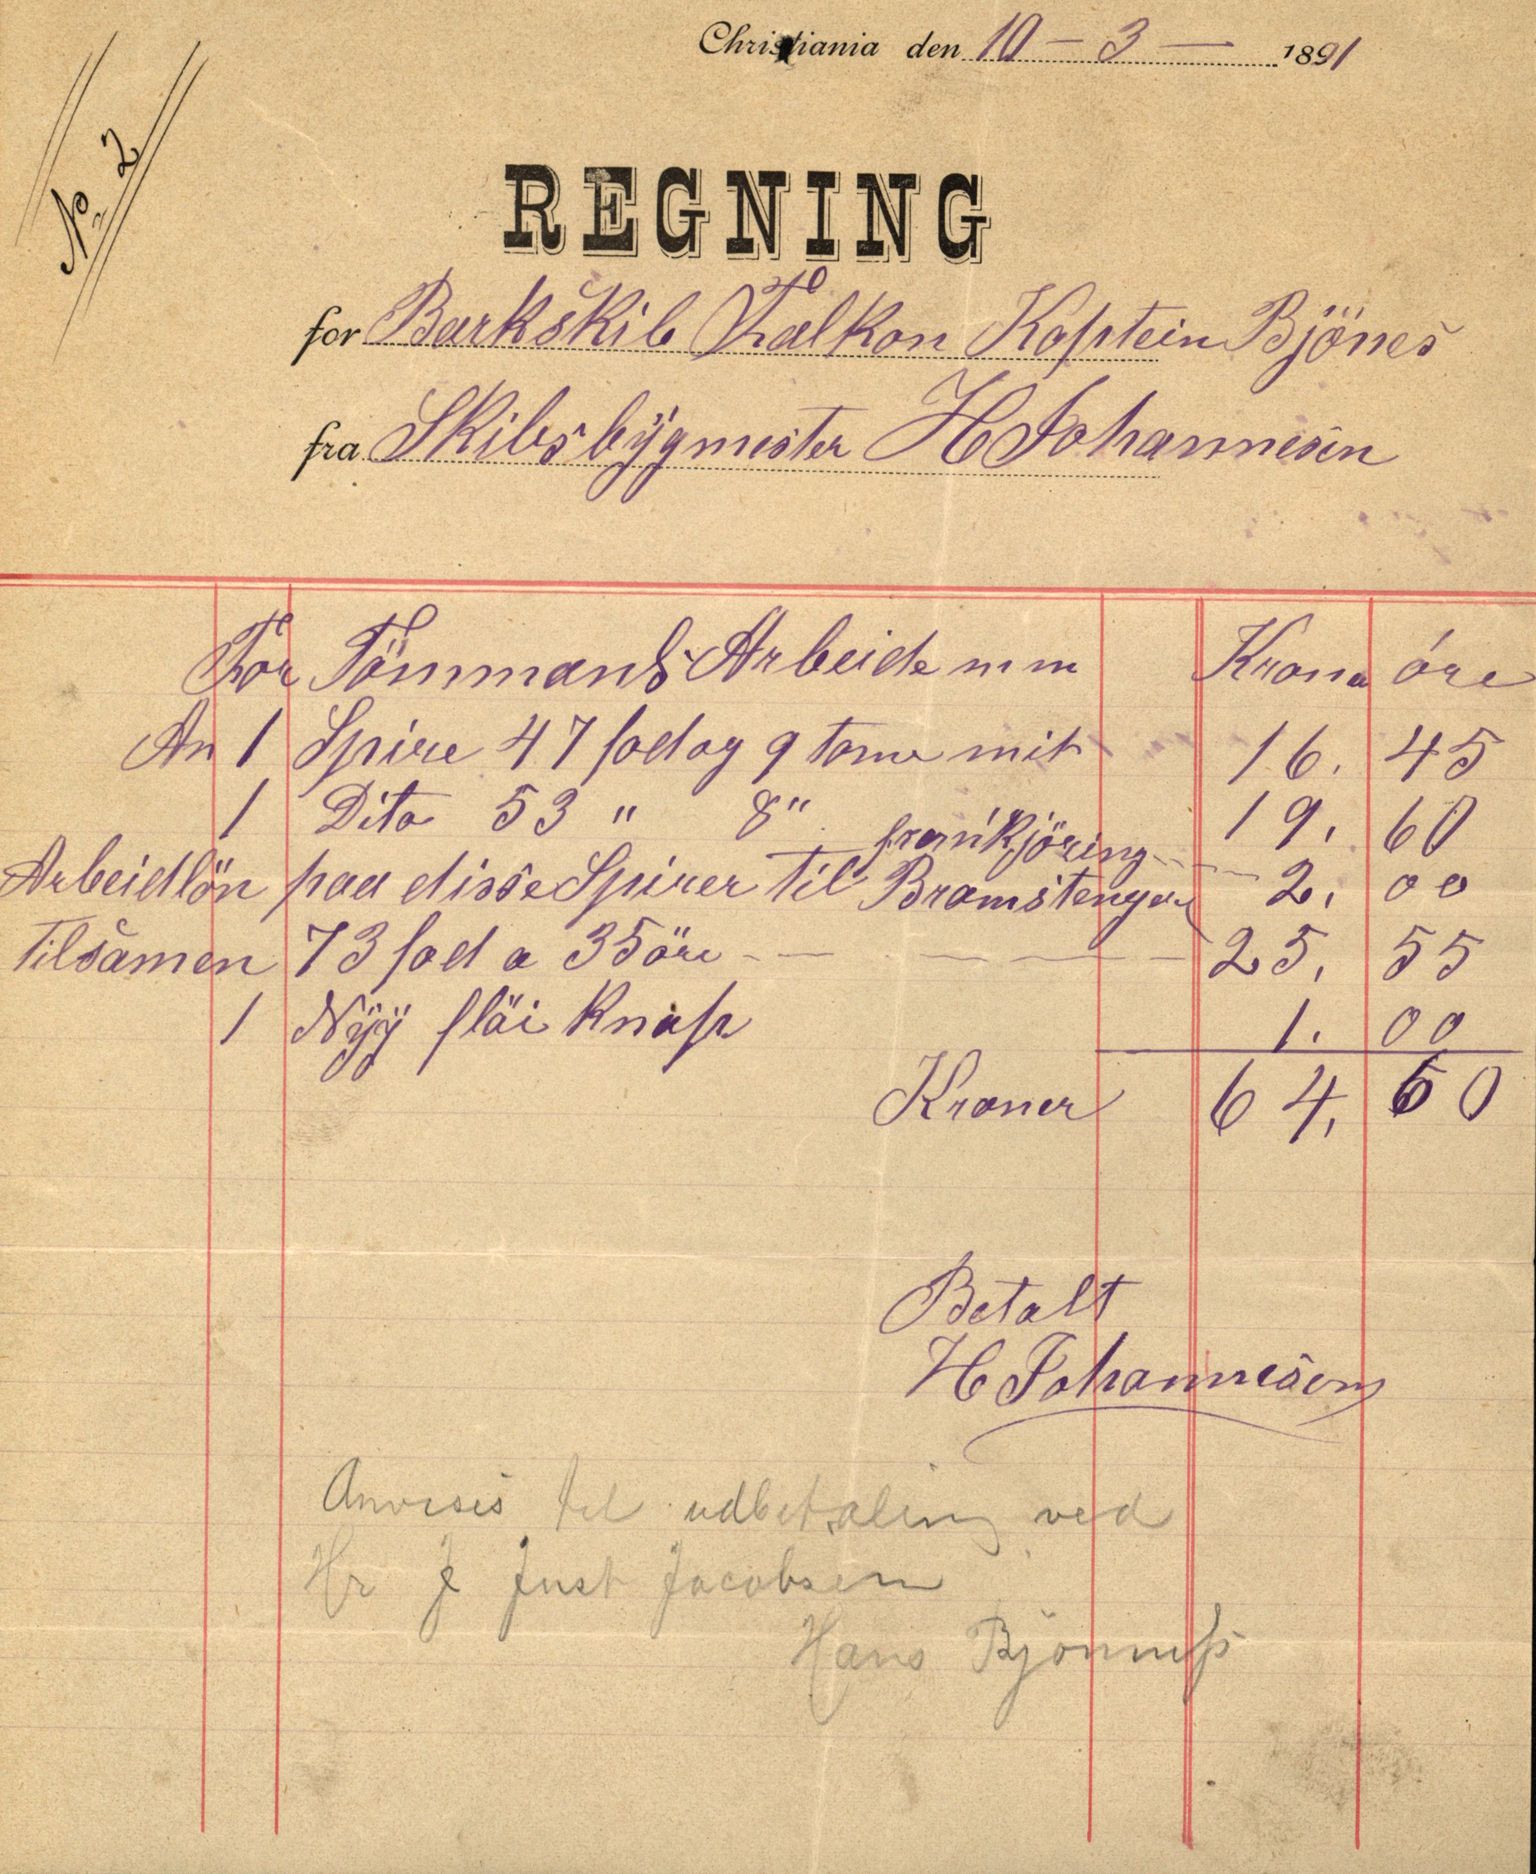 Christiania den 10 – 3 – 1891
No 2
REGNING
for Barkskib Falkon Kaptein Bjönes
fra Skibsbÿgmester H Johannesen
For Tömmands Arbeide m m Krone öre
An 1 Spire 47 fod og 9 tome mit 16. 45
1 Dito 53 " 8" 19. 60
framkjöring - - - 2. 00
Arbeidlön paa disse Spirer til Bramstenger
Tilsamen 73 fod a 35 öre - — — — — 25. 55
1 Nÿÿ flöi knap 1. 00
Kroner 64. 60
Betalt
H Johannesen
Anvises til udbetaling ved
Hr J Just Jacobsen
Hans Bjönness